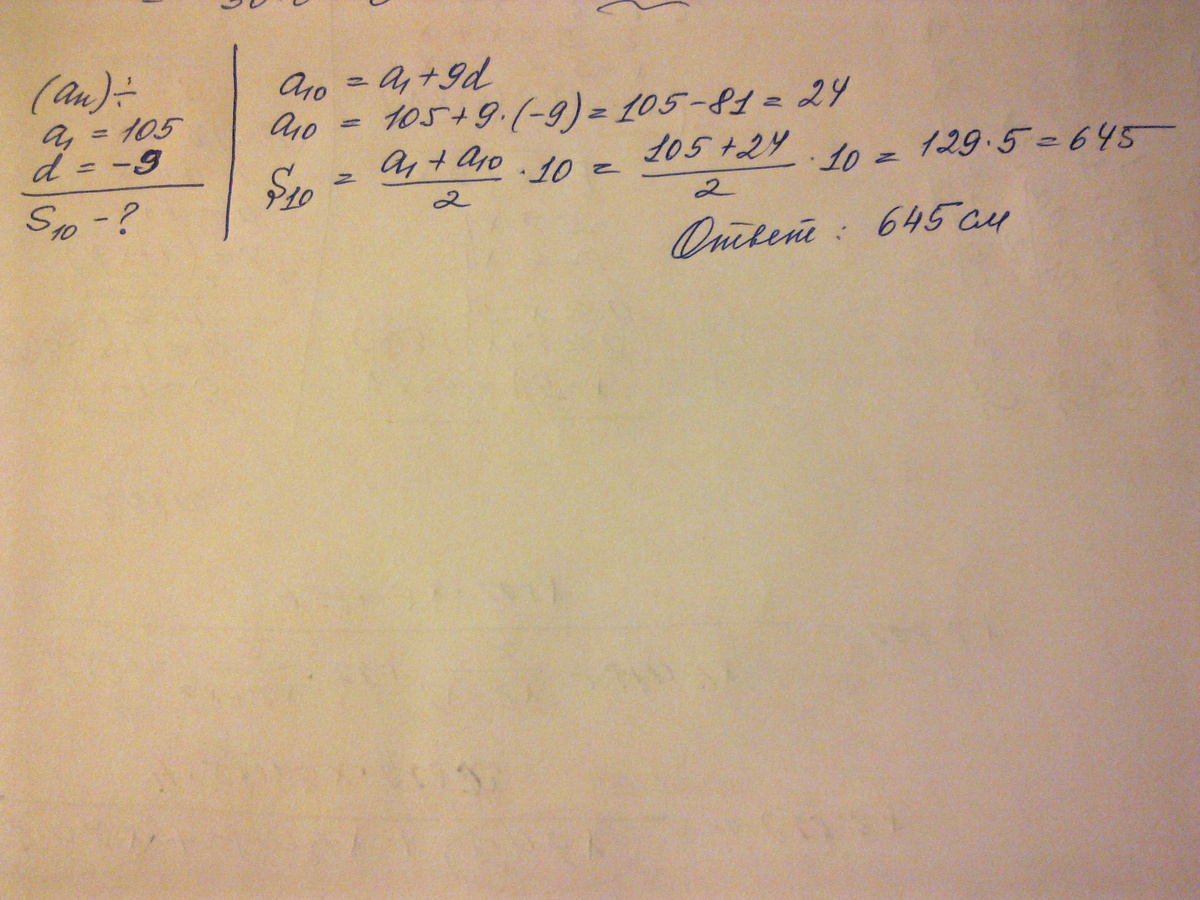 (an)÷
a₁ = 105
d = -9
S₁₀ - ?
a₁₀ = a₁ + 9d
a₁₀ = 105 + 9·(-9) = 105 - 81 = 24
S₁₀ = (a₁ + a₁₀)/2 · 10 = (105 + 24)/2 · 10 = 129·5 = 645
Ответ: 645 см